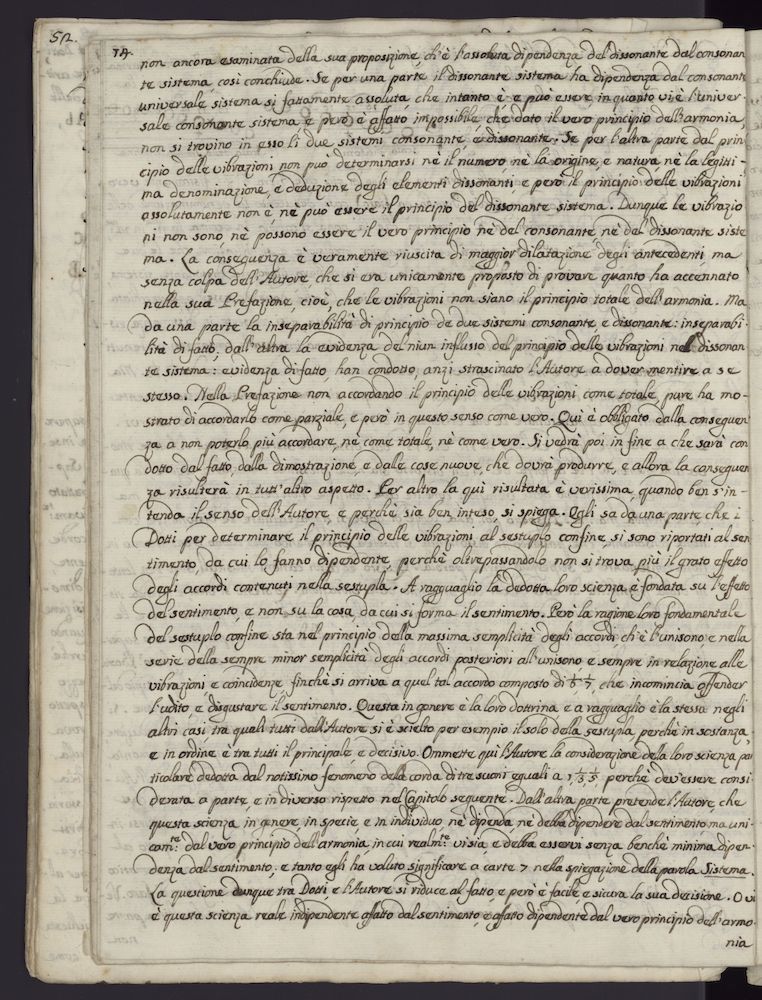 52.
14.
non ancora esaminata della sua proposizione, ch'è l'assoluta dipendenza del dissonante dal consonan
te sistema, così conchiude. Se per una parte il dissonante sistema ha dipendenza dal consonante
universale sistema sì fattamente assoluta, che intanto è, e può essere in quanto vi è l'univer-
sale consonante sistema, e però è affatto impossibile che dato il vero principio dell'armonia,
non si trovino in esso li due sistemi consonante, e dissonante. Se per l'altra parte dal prin
cipio delle vibrazioni non può determinarsi nè il numero nè la origine, e natura, nè la legitti-
ma denominazione, e deduzione degli elementi dissonanti e però il principio delle vibrazioni
assolutamente non è, nè può essere il principio del dissonante sistema. Dunque le vibrazio
ni non sono, nè possono essere il vero principio nè del consonante nè del dissonante siste
ma. La conseguenza è veramente riuscita di maggior dilatazione degli antecedenti, ma
senza colpa dell'Autore, che si era unicamente proposto di provare quanto ha accennato
nella sua Prefazione, cioè, che le vibrazioni non siano il principio totale dell'armonia. Ma
da una parte la inseparabilità di principio de due sistemi consonante, e dissonante: inseparabi-
lità di fatto, dall'altra la evidenza del niun influsso del principio delle vibrazioni nel dissonan
te sistema: evidenza di fatto, han condotto, anzi strascinato l'Autore a dover mentire a se
stesso. Nella Prefazione non accordando il principio delle vibrazioni come totale, pure ha mo-
strato di accordarlo come parziale, e però in questo senso come vero. Qui è obbligato dalla conseguen
za a non poterlo più accordare, nè come totale, nè come vero. Si vedrà poi in fine a che sarà con
dotto dal fatto, dalla dimostrazione, e dalle cose nuove, che dovrà produrre, e allora la conseguen
za risulterà in tutt'altro aspetto. Per altro la quì risultata è verissima, quando ben s'in-
tenda il senso dell'Autore, e perchè sia ben inteso, si spiega. Egli sa da una parte, che i
Dotti per determinare il principio delle vibrazioni al sestuplo confine, si sono riportati al sen
timento, da cui lo fanno dipendente, perchè oltrepassandolo non si trova più il grato effetto
degli accordi contenuti nella sestupla. A ragguaglio la dedotta loro scienza è fondata su l'effetto
del sentimento, e non su la cosa, da cui si forma il sentimento. Però la ragione loro fondamentale
del sestuplo confine sta nel principio della massima semplicità degli accordi ch'è l'unisono, e nella
serie della sempre minor semplicità degli accordi posteriori all'unisono e sempre in relazione alle
vibrazioni e coincidenze, finchè si arriva a quel tal accordo composto di 1/6 1/7, che incomincia offender
l'udito, e disgustare il sentimento. Questa in genere è la loro dottrina, e a ragguaglio è la stessa negli
altri casi, tra quali tutti dall'Autore si è scielto per esempio il solo della sestupla, perchè in sostanza,
e in ordine è tra tutti il principale, e decisivo. Ommette quì l'Autore la considerazione della loro scienza par
ticolare dedotta dal notissimo fenomeno della corda di tre suoni eguali a 1, 1/3, 1/5 perchè dev'essere consi
derata a parte, e in diverso rispetto nel Capitolo seguente. Dall'altra parte pretende l'Autore, che
questa scienza in genere, in specie, e in individuo nè dipenda, nè debba dipendere dal sentimento ma uni-
cam:te dal vero principio dell'armonia, in cui realm:te vi sia, e debba esservi senza benchè minima dipen-
denza dal sentimento; e tanto egli ha voluto significare a carte 7 nella spiegazione della parola Sistema.
La questione dunque tra Dotti, e l'Autore si riduce al fatto, e però è facile e sicura la sua decisione. O vi
è questa scienza reale indipendente affatto dal sentimento, e affatto dipendente dal vero principio dell'armo-
nia